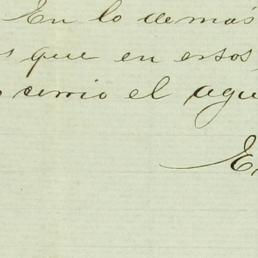 En lo demás
s que en estos
cerrio el agu
E